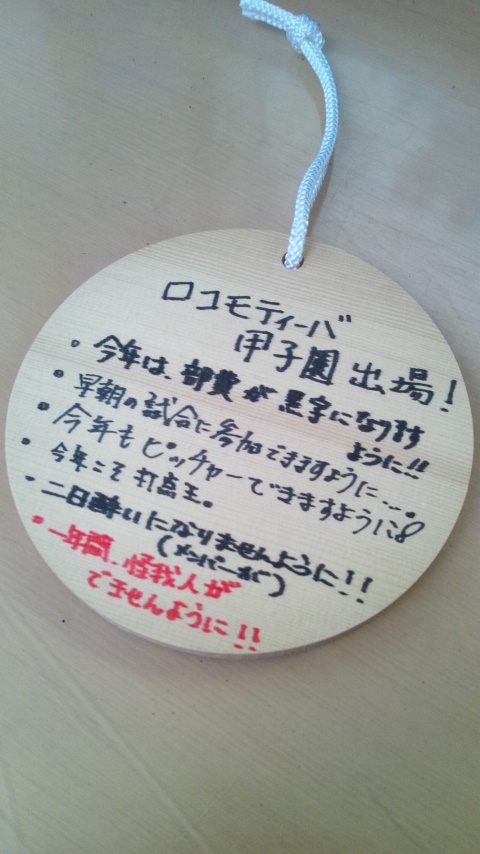 ロコモティーバ
甲子園出場!
・今年は、部費が黒字になります
ように!!
・早朝の試合に参加できますように…。
・今年もピッチャーできますように
・今年こそ打点王。
・二日酔いになりませんように!!
(メンバーが)
・一年間、怪我人が
でませんように!!